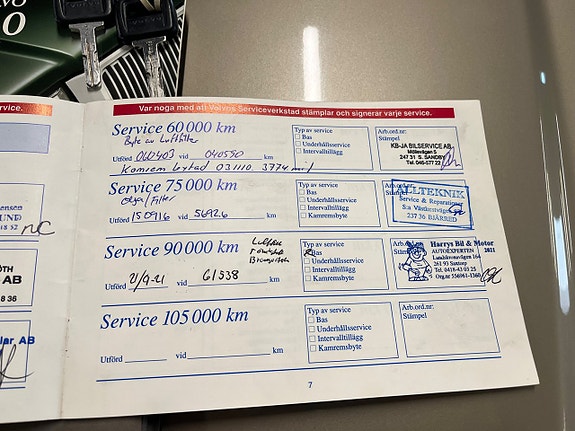 O
rvice.
Var noga med att Volvos Serviceverkstad stämplar och signerar varje service.
Service 60 000 km
Byte av Luftfilter
Utförd 060403 vid 040550 km
Kamrem bytad 031110 3774 mil
Typ av service
Bas
Underhållsservice
Intervalltillägg
Arb.ord.nr:
Stämpel
KB-JA BILSERVICE AB
Möllevägen 5
247 31 S. SANDBY
Tel. 046-577 22
Service 75 000 km
Olja/Filter
Utförd 150916 vid 56926 km
Typ av service
Bas
Underhållsservice
Intervalltillägg
Kamremsbyte
Arb.ord.nr:
BILTEKNIK
Service & Reparationer
S:a Västkustvägen
237 36 BJÄRRED
Service 90 000 km
Luftfilter
Bromsvätska
Utförd 21/9-21 vid 61538 km
Typ av service
Bas
Underhållsservice
Intervalltillägg
Kamremsbyte
Arb.ord.nr:
Harrys Bil & Motor
AUTOEXPERTEN 2021
Landskronavägen 164
261 93 Saxtorp
Tel. 0418-43 03 25
Org.nr 556961-1360
Service 105 000 km
Utförd vid km
Typ av service
Bas
Underhållsservice
Intervalltillägg
Kamremsbyte
Arb.ord.nr:
Stämpel
7
ensen
UND
18 32
ÖTH
AB
8 36
lar AB